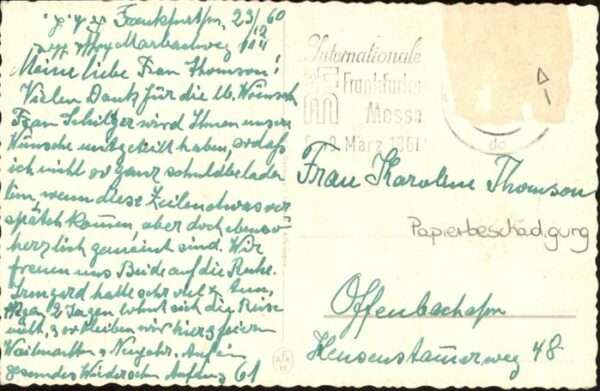 Frankfurtm, 23/12 60
Marbachweg
Meine liebe Frau Thomson!
Vielen Dank für die lb. Wünsch
Frau Schilger wird Ihnen unsere
Wünsche mitgeteilt haben, sodaß
ich nicht so ganz schuldbeladen
bin, wenn diese Zeilen etwas ver
spätet kommen, aber doch ebenso
herzlich gemeint sind. Wir
freuen uns Beide auf die Ruhe.
Irmgard hatte sehr viel z. tun,
Wegen 2 Tagen lohnt sich die Reise
nicht, so bleiben wir hier & feiern
Weihnachten & Neujahr. Auf ein
gesundes Wiedersehn Anfang 61
Internationale
Frankfurter
Messe
5.-9. März 1961
Frau Karoline Thomson
Papierbeschädigung
Offenbach a/m
Hensenstamerweg 48